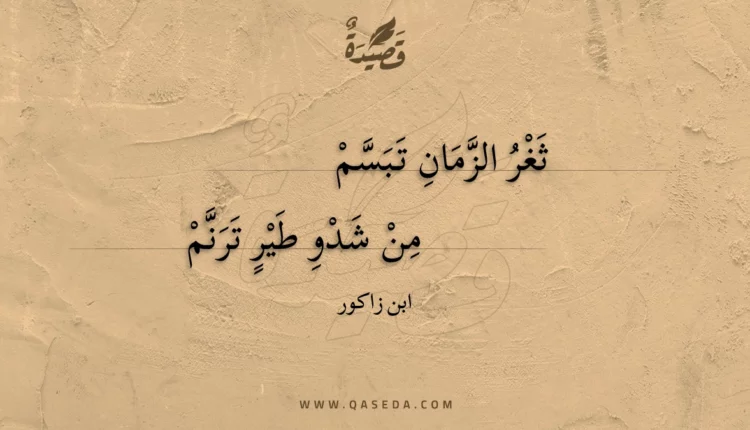 قَصِيدَةٌ
ثَغْرُ الزَّمَانِ تَبَسَّمْ
مِنْ شَدْوِ طَيْرٍ تَرَنَّمْ
ابن زاكور
WWW.QASEDA.COM